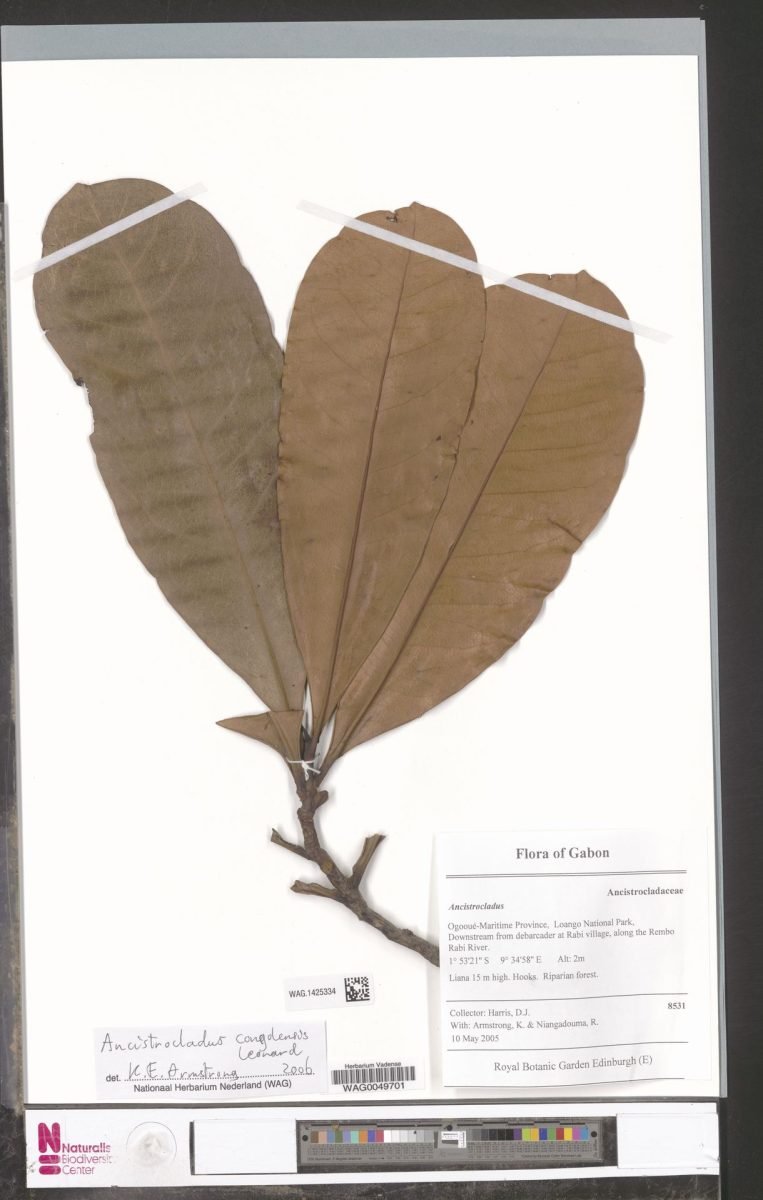 Flora of Gabon
Ancistrocladaceae
Ancistrocladus
Ogooué-Maritime Province, Loango National Park,
Downstream from debarcader at Rabi village, along the Rembo
Rabi River.
1° 53'21" S 9° 34'58" E Alt: 2m
Liana 15 m high. Hooks. Riparian forest.
8531
Collector: Harris, D.J.
With: Armstrong, K. & Niangadouma, R.
10 May 2005
Royal Botanic Garden Edinburgh (E)
WAG.1425334
Ancistrocladus congolensis
Leonard
det. K.E. Armstrong 2006
Nationaal Herbarium Nederland (WAG)
Herbarium Vadense
WAG0049701
Naturalis
Biodiversity
Center